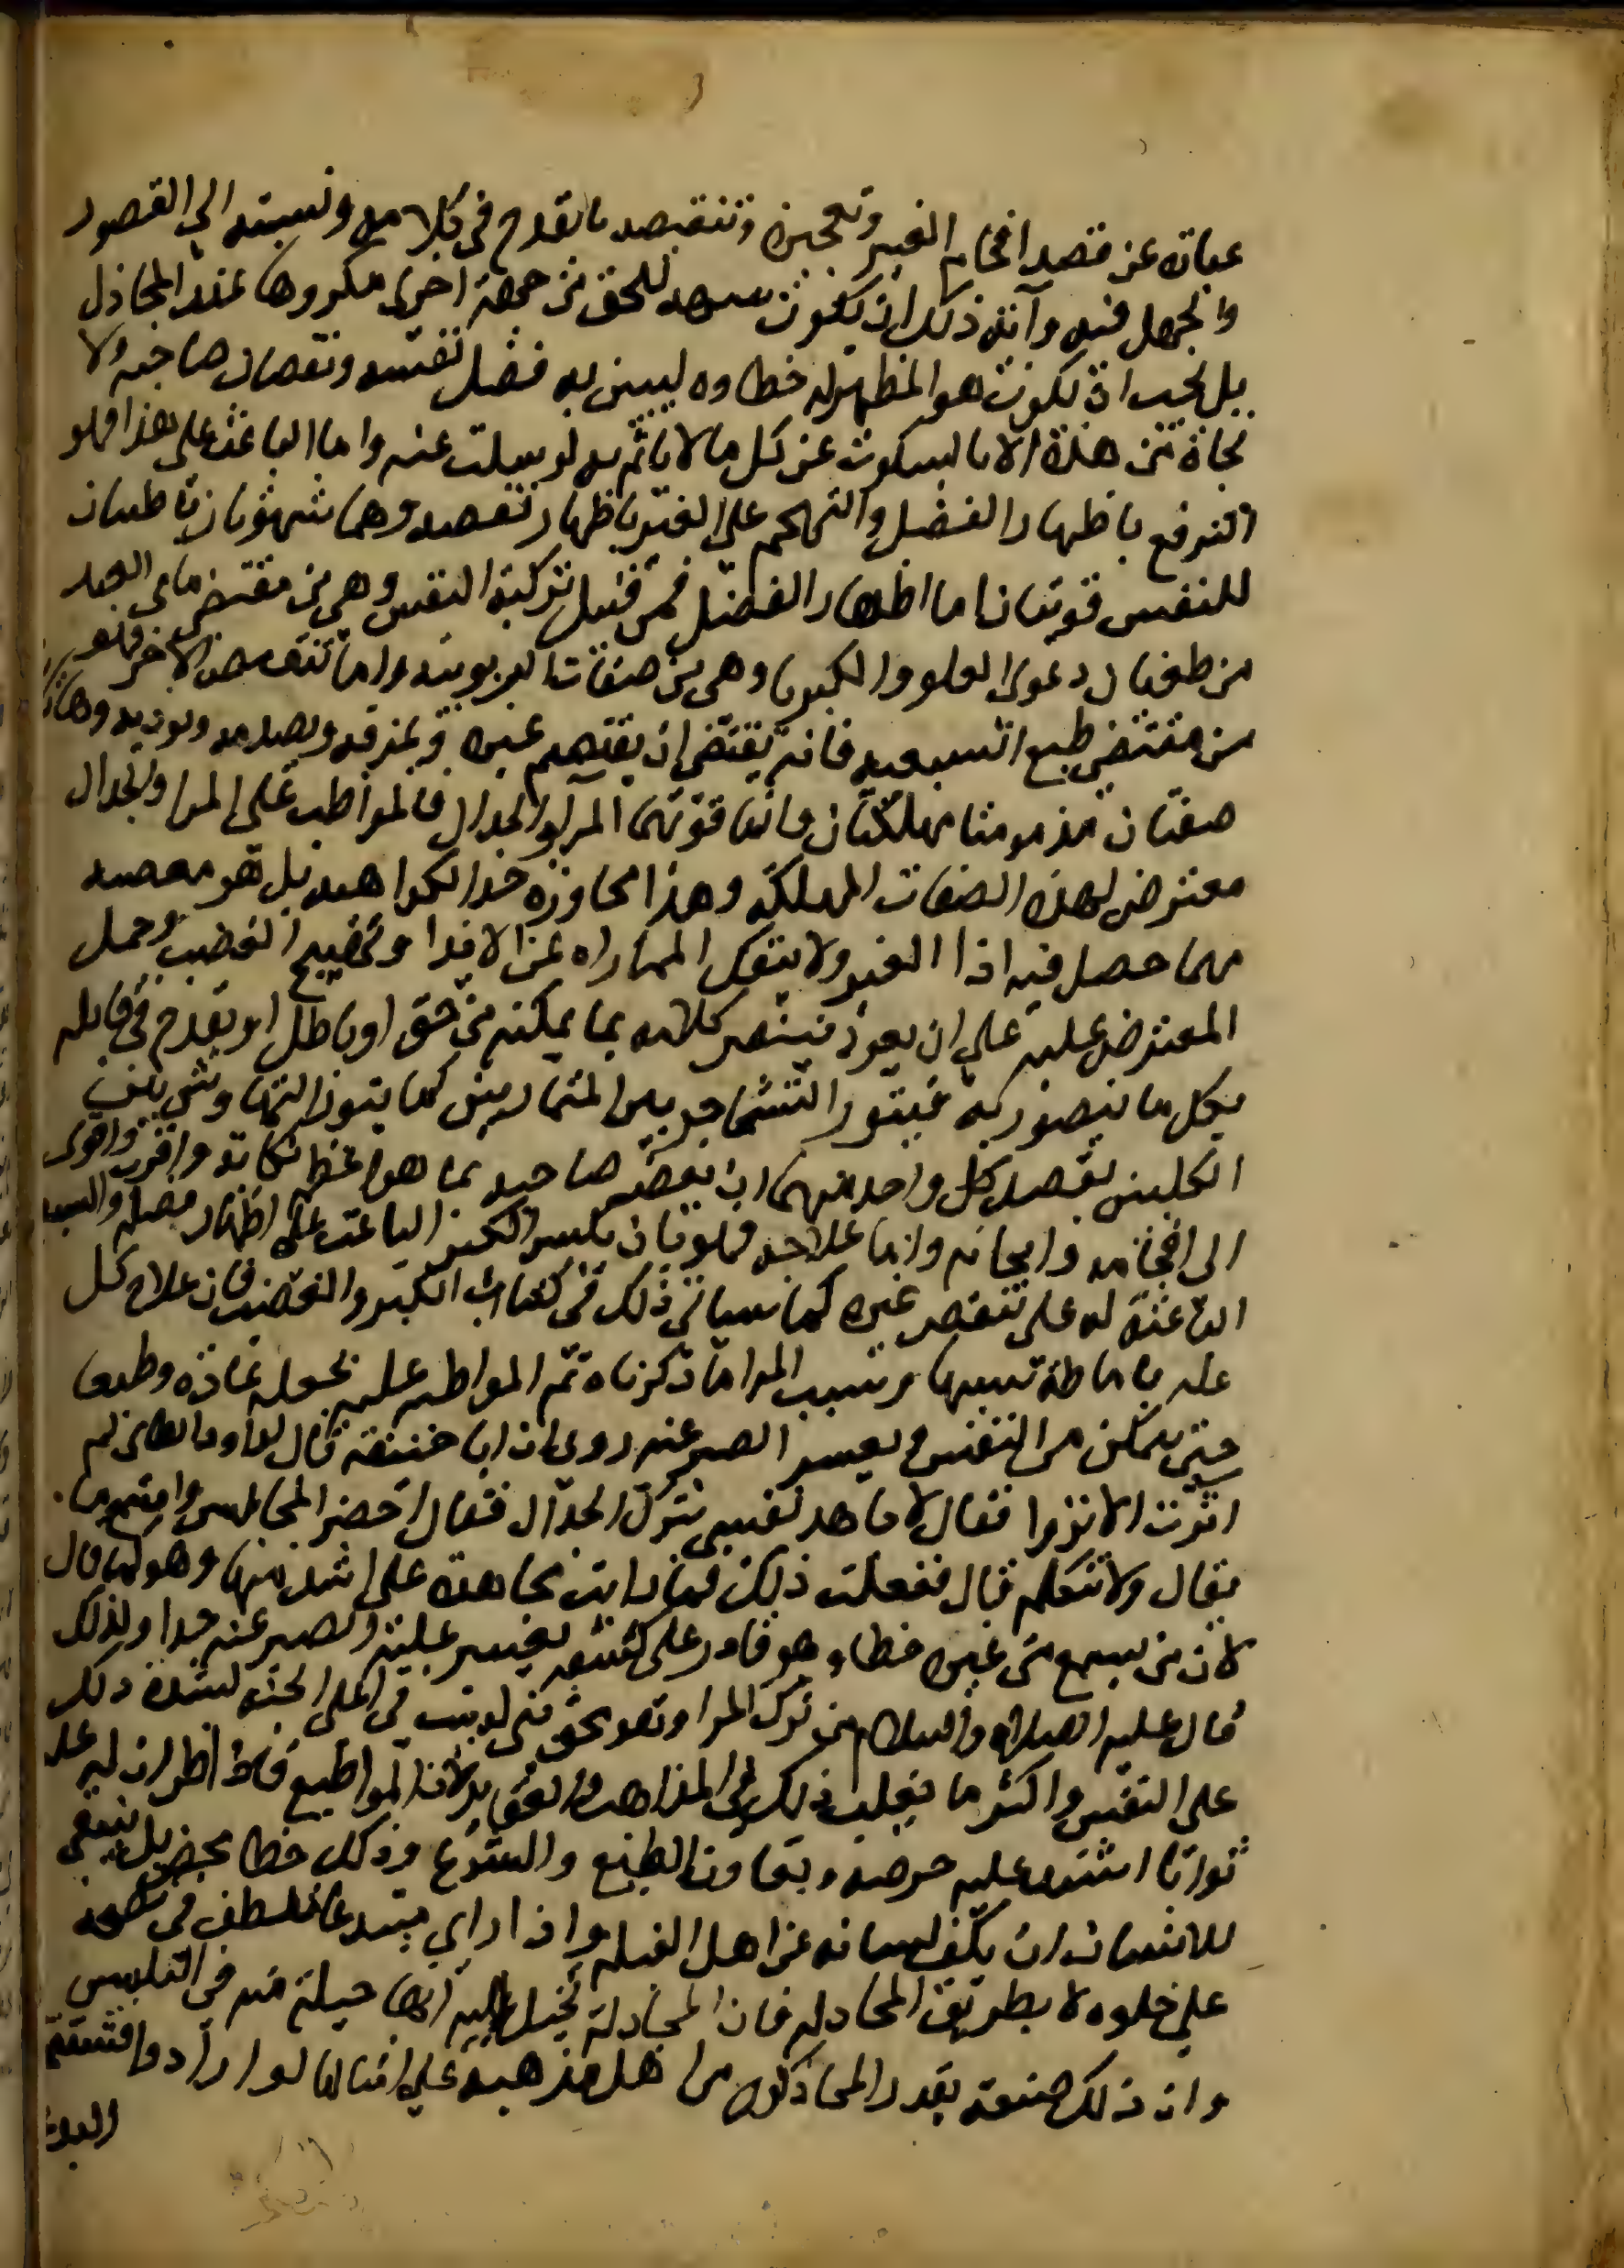 عبارة عن قصد افحام الغير وتعجيزه وتنقيصه بالقدح في كلامه ونسبته الي القصور
والجهل فيه وآية ذلك ان يكون تنبيهه للحق من جهة اخري مكروها عند المجادل
بل يحب ان يكون هو المظهر له خطاوه ليبين به فضل نفسه ونقصان صاحبه ولا
نجاة من هذا الا بالسكوت عن كل ما لا ياثم به لو سكت عنه واما الباعث علي هذا فهو
الترفع باظهار الفضل والتهجم علي الغير باظهار نقصه وهما شهوتان باطنتان
للنفس قويتان اما اظهار الفضل فمن قبيل تزكية النفس وهي من مقتضي ما في العبد
من طغيان دعوي العلو والكبريا وهي من صفات الربوبية واما تنقيص الاخر فهو
من مقتضي طبع السبعيه فانه يقتضي ان يقتصم غيره ويمزقه ويصدمه ويوذيه وهاتان
صفتان مذمومتان مهلكتان وانما قوتهما المرا والجدال فالمواظب علي المرا والجدال
معترض لهذه الصفات المهلكة وهذا مجاوزة حد الكراهيه بل هو معصيه
مهما حصل فيه اذا الغير ولا ينفك المماراه عن الايذا وتهييج الغضب وحمل
المعترض عليه علي ان يعود فينصر كلامه بما يمكنه من حق او باطل او يقدح في قايله
بكل ما يتصور له فيثور التشاجر بين المتماريين كما يثور التهارش بين
الكلبين يقصد كل واحد منهما ان يعض صاحبه بما هو اعظم نكاية واقوي
الي افحامه والجامه واما علاجه فهو بان يكسر الكبر الباعث علي اظهار فضله والسبعية
الباعثة له علي تنقص غيره كما سياتي ذلك في كتاب الكبر والغضب فان علاج كل
عله باماطة سببها وسبب المرا ما ذكرناه ثم المواظبه عليه تجعله عادة وطبعا
حتي يتمكن من النفس ويعسر الصبر عنه روي ان ابا حنيفة قال لداود الطاي لم
اثرت الانزوا فقال لاجاهد نفسي بترك الجدال فقال احضر المجالس واستمع ما
يقال ولا تتكلم قال ففعلت ذلك فما رايت مجاهدة علي اشد منها وهو كما قال
لان من يسمع من غيره خطا وهو قادر علي كشفه يعسر عليه الصبر عنه جدا ولذلك
قال عليه الصلاة والسلام من ترك المرا وهو محق بني له بيت في اعلي الجنة لشدة ذلك
علي النفس واكثر ما يغلب ذلك في المذاهب والعقايد لان المرا طبع فاذا ظن ان له عليه
ثوابا اشتد عليه حرصه وتعاون الطبع والشرع وذلك خطا محض بل ينبغي
للانسان ان يكف لسانه عن اهل القبله واذا راي مبتدعا تلطف في نصحه
علي خلوه لا بطريق المجادله فان المجادلة تخيل اليه انها حيلة منه في التلبيس
وان ذلك صنعة يقدر المجادلون من اهل مذهبه علي امثالها لو ارادوا فتستمر
البدعة